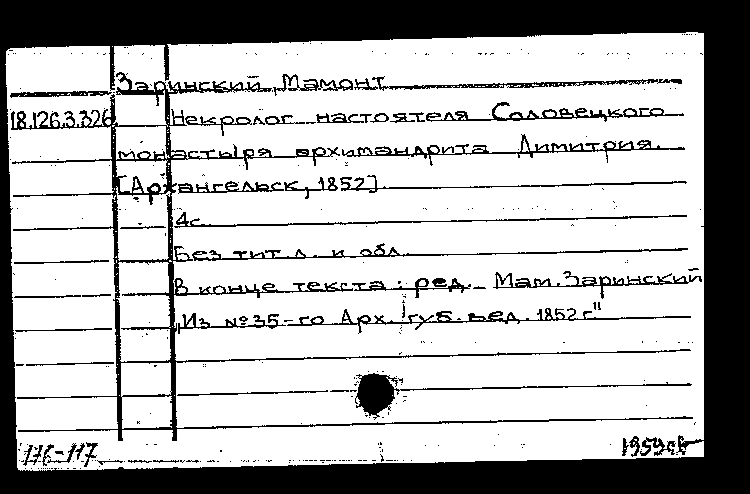 Заринский, Мамонт
18.126.3.326 Некролог настоятеля Соловецкого
монастыря архимандрита Димитрия.
[Архангельск, 1852].
4с.
Без тит. л. и обл.
В конце текста: ред. Мам. Заринский
„Из №35-го Арх. губ. вед. 1852 г."
116-117